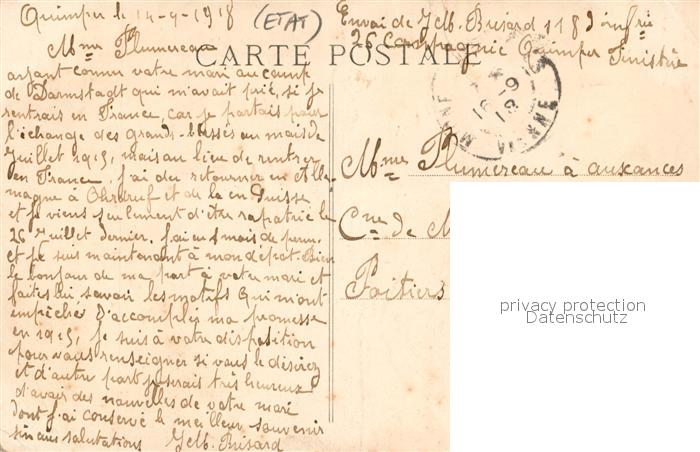 Quimper le 14-9-1918 (ETAT)
Envoi de Bresard 118 d'infrie
26 Compagnie Quimper Finistère
CARTE POSTALE
Mme Plumereau
ayant connu votre mari au camp
de Darmstagt qui m'avait prié, si je
rentrais en France, car je partais pour
l'échange des grands-blessés au mois de
Juillet 1915, mais au lieu de rentrer
en France, j'ai du retourner en Alle-
magne à Ohrdruf et de la en Suisse
et je viens seulement d'être rapatrié le
26 Juillet dernier. j'ai eu 1 mois de perm.
et je suis maintenant à mon dépot. Bien
le bonjour de ma part à votre mari et
faites lui savoir les motifs qui m'ont
empêcher d'accomplir ma promesse
en 1915, je suis à votre disposition
pour vous renseigner si vous le désirez
et d'autre part je serais très heureux
d'avoir des nouvelles de votre mari
dont j'ai conservé le meilleur souvenir
sincères salutations Bresard
Mme Plumereau à auxances
Cne de M
Poitiers
16-9
18
VIENNE
privacy protection
Datenschutz